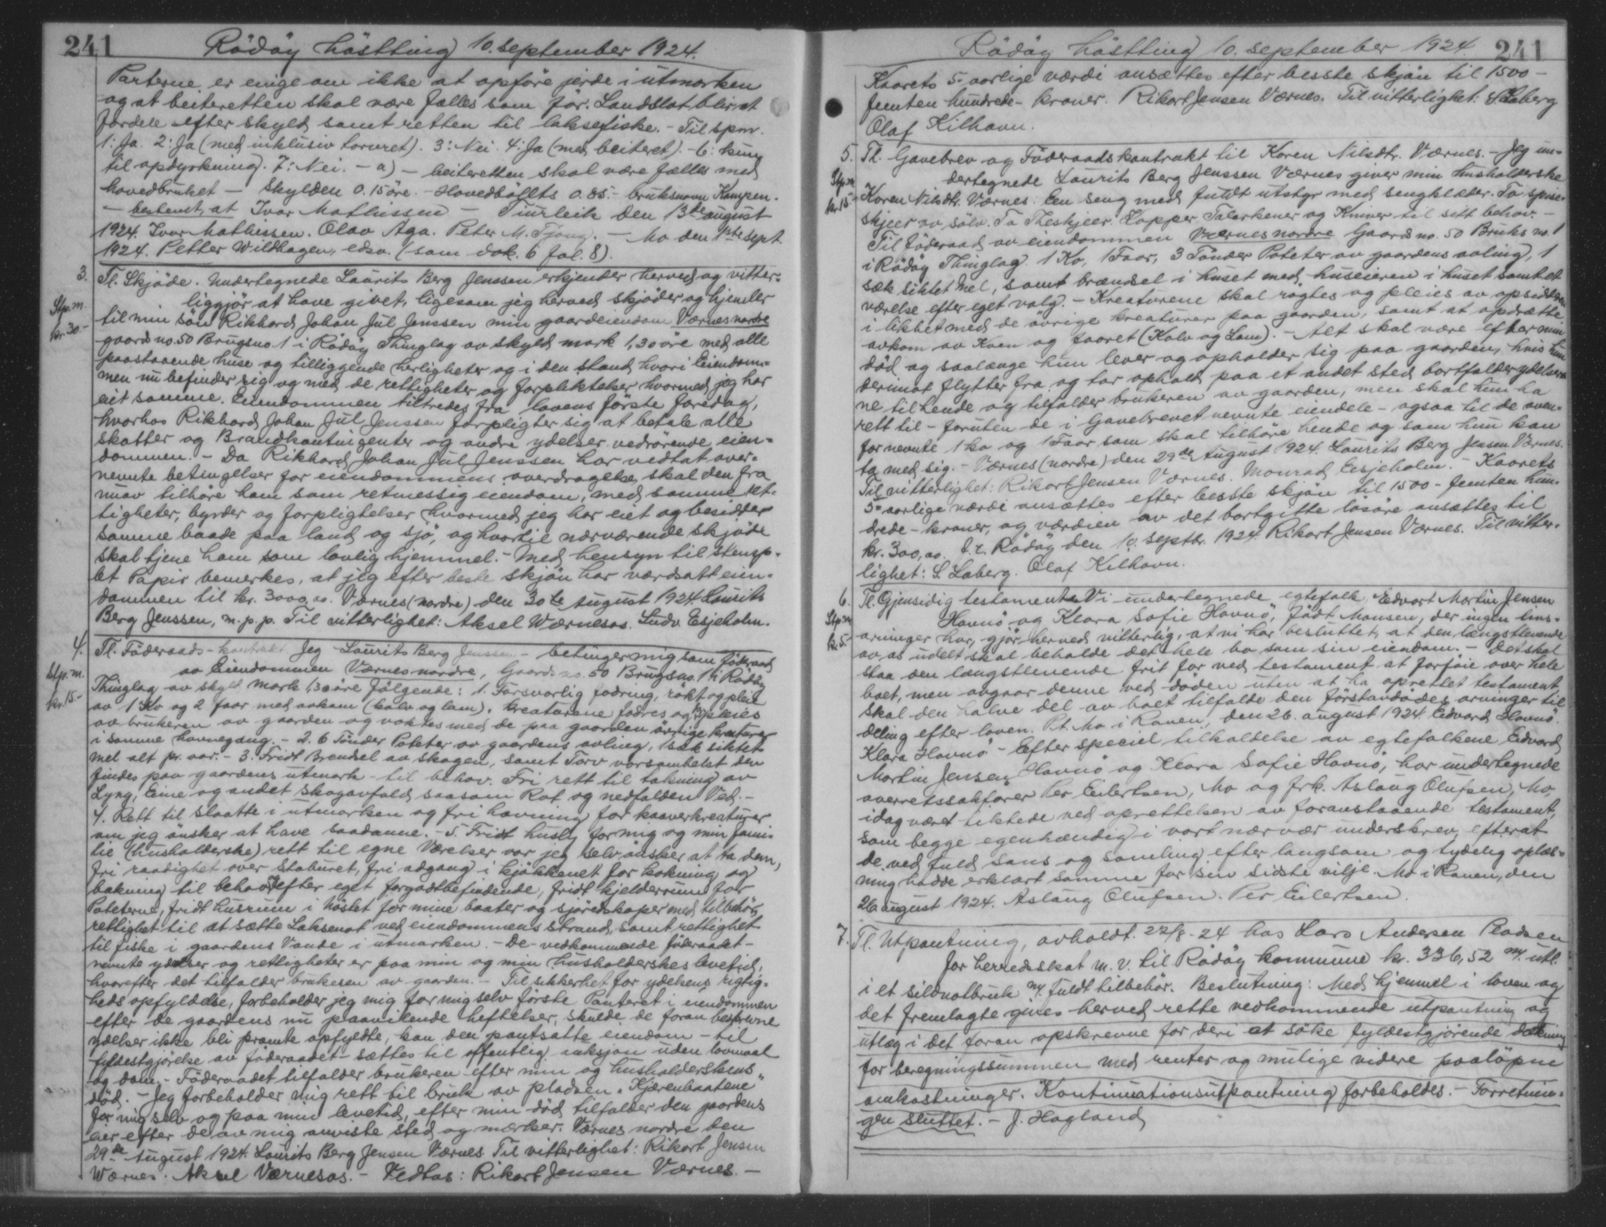 241
Rödöy hösting 10. september 1924.
Parterne er enige om ikke at opföre gjerde i utmarken
og at beiteretten skal være fælles som för. Landslot blir at
fordele efter skyld samt retten til laksefiske. - Til spm.
1: Ja. 2: Ja (med inklusiv torvret). 3: Nei. 4: Ja (med beiteret) - 6: kun
til opdyrkning. 7: Nei. - a) - beiteretten skal være fælles med
hovedbruket - Skylden 0.15 öre. - Hovedbölets 0.85 - bruksnavn Kampen.
- bestemt, at Ivar Mathissen - den 13de august
1924. Ivar Mathissen. Olav Aga. Peter M. Tjong. - Mo den 1ste sept.
1924. Petter Wildhagen, edsv. (som dok. 6 fol. 8).
3. Tl. Skjöde. Undertegnede Laurits Berg Jenssen erkjender herved og vitter-
liggjör at have givet, ligesom jeg herved skjöder og hjemler
Stp.m.
kr. 30.-
til min sön Rikhard Johan Jul Jenssen min gaardeiendom Værnes nordre
gaards no. 50 Brugsno 1 i Rödöy Thinglag av skyld mark 1,30 öre med alle
paastaaende huse og tilliggende herligheter og i den stand, hvori Eiendom-
men nu befinder sig og med de rettigheter og forpliktelser hvormed jeg har
eiet samme. Eiendommen tiltrædes fra lovens förste faredag,
hvorhos Rikhard Johan Jul Jenssen forpligter sig at betale alle
skatter og Brandkontingenter og andre ydelser vedrörende eien-
dommen. - Da Rikhard Johan Jul Jenssen har vedtat over-
nevnte betingelser for eiendommens overdragelse, skal den fra
nuav tilhöre ham som retmessig eiendom, med samme ret-
tigheter, byrder og forpligtelser hvormed jeg har eiet og besiddet
samme baade paa land og sjö, og hvortil nærværende skjöde
skal tjene ham som lovlig hjemmel. - Med hensyn til stemp-
let Papir bemerkes, at jeg efter beste skjön har værdsatt eien-
dommen til kr. 3000,00. Værnes (nordre) den 30te August 1924 Laurits
Berg Jenssen, m.p.p. Til vitterlighet: Aksel Wærnesos. Ludv. Esjeholm.
4. Tl. Föderaads-kontrakt Jeg Laurits Berg Jenssen - betinger mig som föderaad
Stp.m.
kr. 15.-
av Eiendommen Værnes nordre, Gaards no. 50 Brugsno. 1 i Rödöy
Thinglag av skyld mark 1,30 öre fölgende: 1. Forsvarlig fodring, rökt og pleie
av 1 Ko og 2 faar med avkom (kalv og lam). Kreaturene fodres og pleies
av brukeren av gaarden og voktes med de paa gaarden övrige kreaturer
i samme havnegang. - 2. 6 Tönder Poteter av gaardens avling, 1 sæk siktet
mel alt pr. aar. - 3. Fridt Brændsel av skogen, samt Torv forsaavidt den
findes paa gaardens utmark - til behov. Fri rett til tækning av
Lyng, Eine og andet skogavfald saasom Rot og nedfalden Ved. -
4. Rett til slaatte i utmarken og fri havning for kaarkreaturer
om jeg önsker at have saadanne. - 5. Fridt husly for mig og min fami-
lie (husholderske) rett til egne Værelser var jeg selv önsker at ha dem,
fri raadighet over Staburet, fri adgang i kjökkenet for kokning og
bakning til behov efter eget forgodtbefindende, fridt kjelderrum for
Poteterne, fridt husrum i Nöstet for mine baater og sjöredskaper med tilbehör,
rettighet til at sætte Laksenot ved eiendommens strand, samt rettighet
til fiske i gaardens Vande i utmarken. - De vedkommende föderaadet
nevnte ydelser og rettigheter er paa min og min husholderskes levetid,
hvorefter det tilfalder brukeren av gaarden. - Til sikkerhet for ydelsens rigtig-
heds opfyldelse, forbeholder jeg mig for mig selv förste Panteret i eiendommen
efter de gaardens nu paavilende heftelser, skulde de foran beskrevne
ydelser ikke bli promte opfyldte, kan den pantsatte eiendom - til
fyldestgjörelse av föderaadet - sættes til offentlig auksjon uden lovmaal
og dom. - Föderaadet tilfalder brukeren efter min og husholderskens
död. - Jeg forbeholder mig rett til bruk av pladsen "Kjerenbaatene"
for mig selv og paa min levetid, efter min död tilfalder den gaardens
eier efter de av mig anviste sted og mærker. Værnes nordre den
29de August 1924. Laurits Berg Jensen Værnes Til vitterlighet: Rikart Jensen
Wærnes. Aksel Værnesos. - Vedtas: Rikart Jensen Værnes. -
Rödöy hösting 10. september 1924.
241
Kaarets 5-aarlige værdi ansættes efter besste skjön til 1500 -
femten hundrede - kroner. Rikart Jensen Værnes. Til vitterlighet: S Laberg
Olaf Kilhavn.
5. Th. Gavebrev og Föderaadskontrakt til Karen Nilsdtr. Værnes. - Jeg un-
dertegnede Laurits Berg Jenssen Værnes giver min husholderske
Stp.m.
kr. 15.-
Karen Nilsdtr. Værnes: Een seng med fuldt utstyr med sengklæder. To spise-
skjeer av sölv. To Theskjeer. Kopper Talerkener og Kniver til sitt behov. -
Til föderaad av eiendommen Værnes nordre Gaards no. 50 Bruks no. 1
i Rödöy Thinglag 1 Ko, 1 Faar, 3 Tönder Poteter av gaardens avling, 1
sæk siktet mel, samt brændsel i huset med huseieren i huset samt et
værelse efter eget valg. - Kreaturene skal rögtes og pleies av opsidderen
i likhet med de övrige kreaturer paa gaarden, samt at opdrætte
avkom av Koen og faaret (Kalv og Lam). - Alt skal være efter min
död og saalænge hun lever og opholder sig paa gaarden, hvis hun
derimot flytter fra og tar ophold paa et andet sted bortfalder ydelser-
ne til hende og tilfalder brukeren av gaarden, men skal hun ha
rett til - foruten de i Gavebrevet nevnte eiendele - ogsaa til de oven-
for nevnte 1 ko og 1 Faar som skal tilhöre hende og som hun kan
ta med sig. - Værnes (nordre) den 29de August 1924. Laurits Berg Jensen Værnes.
Til vitterlighet: Rikart Jensen Værnes. Monrad Esjeholm. - Kaarets
5-aarlige værdi ansættes efter besste skjön til 1500 - femten hun-
drede - kroner, og værdien av det bortgifte lösöre ansættes til
kr. 300,00. P.t. Rödöy den 10. septbr. 1924 Rikart Jensen Værnes. Til vitter-
lighet: S. Laberg. Olaf Kilhavn.
6. Tl. Gjensidig testamente. Vi undertegnede egtefolk Edvart Martin Jensen
Stp.m.
kr. 5.-
Havnö og Klara Sofie Havnö, födt Monsen, der ingen livs-
arvinger har, gjör herved vitterlig, at vi har besluttet, at den længstlevende
av os udelt skal beholde det hele bo som sin eiendom. - Det skal
staa den længstlevende frit for ved testament at forföie over hele
boet, men avgaar denne ved döden uten at ha oprettet testament
skal den halve del av boet tilfalde den förstavdödes arvinger til
deling efter loven. Pt. Mo i Ranen, den 26. august 1924 Edvard Havnö.
Klara Havnö - Efter speciel tilkaldelse av egtefolkene Edvard
Martin Jensen Havnö og Klara Sofie Havnö, har undertegnede
overretssakförer Per Eilertsen, Mo og frk. Aslaug Olufsen, Mo,
idag været tilstede ved oprettelsen av foranstaaende testament,
som begge egenhændig i vort nærvær underskrev, efterat
de ved fuld sans og samling efter langsom og tydelig oplæs-
ning hadde erklært samme for sin sidste vilje. Mo i Ranen, den
26 august 1924. Aslaug Olufsen. Per Eilertsen.
7. Tl. Utpantning, avholdt 22/8-24 hos Lars Andersen
for herredsskat m.v. til Rödöy kommune kr. 336,52 m/ utl.
i et sildnotbruk m/ fuldt tilbehör. Beslutning: Med hjemmel i loven og
det fremlagte gives herved rette vedkommende utpantning og
utlæg i det foran opskrevne for deri at söke fyldestgjörende dækning
for beregningssummen med renter og mulige videre paalöpne
omkostninger. Kontinuationsutpantning forbeholdes. - Forretnin-
gen sluttet. - J. Hagland